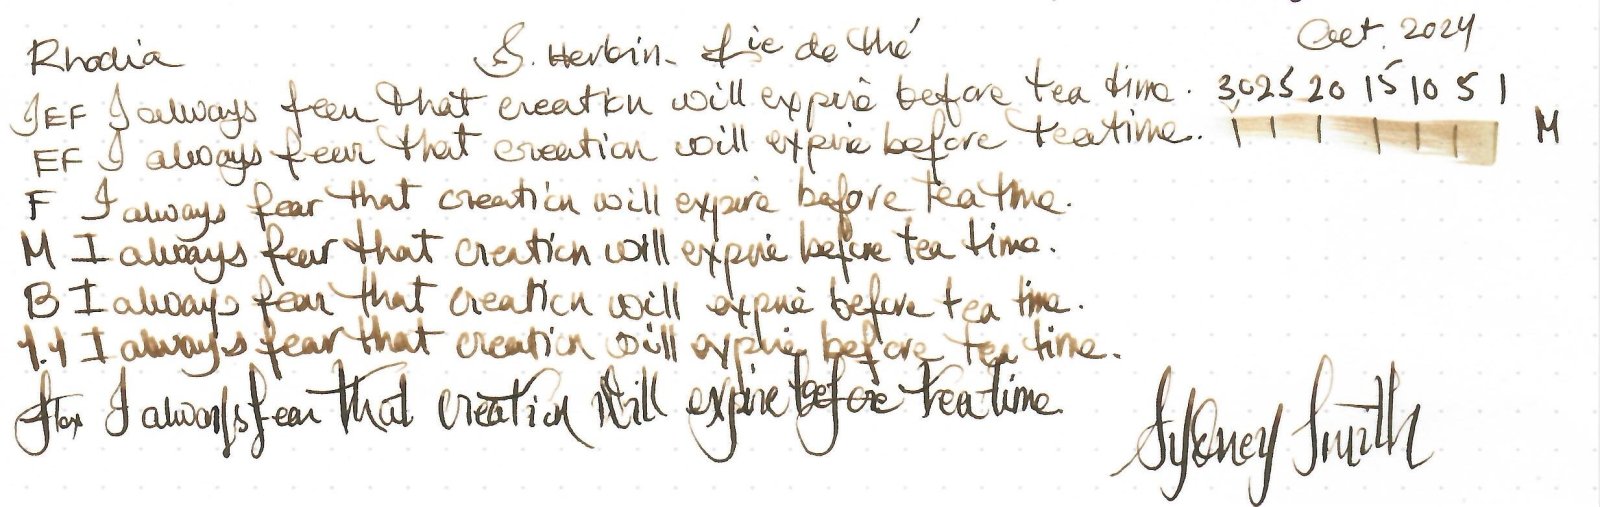 Rhodia J. Herbin - Lie de thé Oct. 2024
JEF I always fear that creation will expire before tea time. 30 25 20 15 10 5 1
EF I always fear that creation will expire before tea time. M
F I always fear that creation will expire before tea time.
M I always fear that creation will expire before tea time.
B I always fear that creation will expire before tea time.
1.1 I always fear that creation will expire before tea time.
flex I always fear that creation will expire before tea time
Sydney Smith